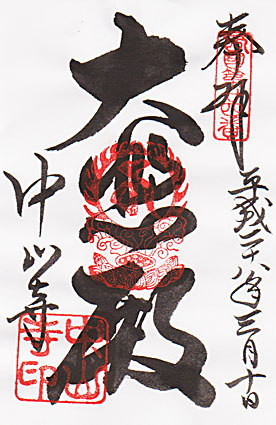 奉拝
平成二十八年三月十日
大悲殿
中山寺
中山寺印